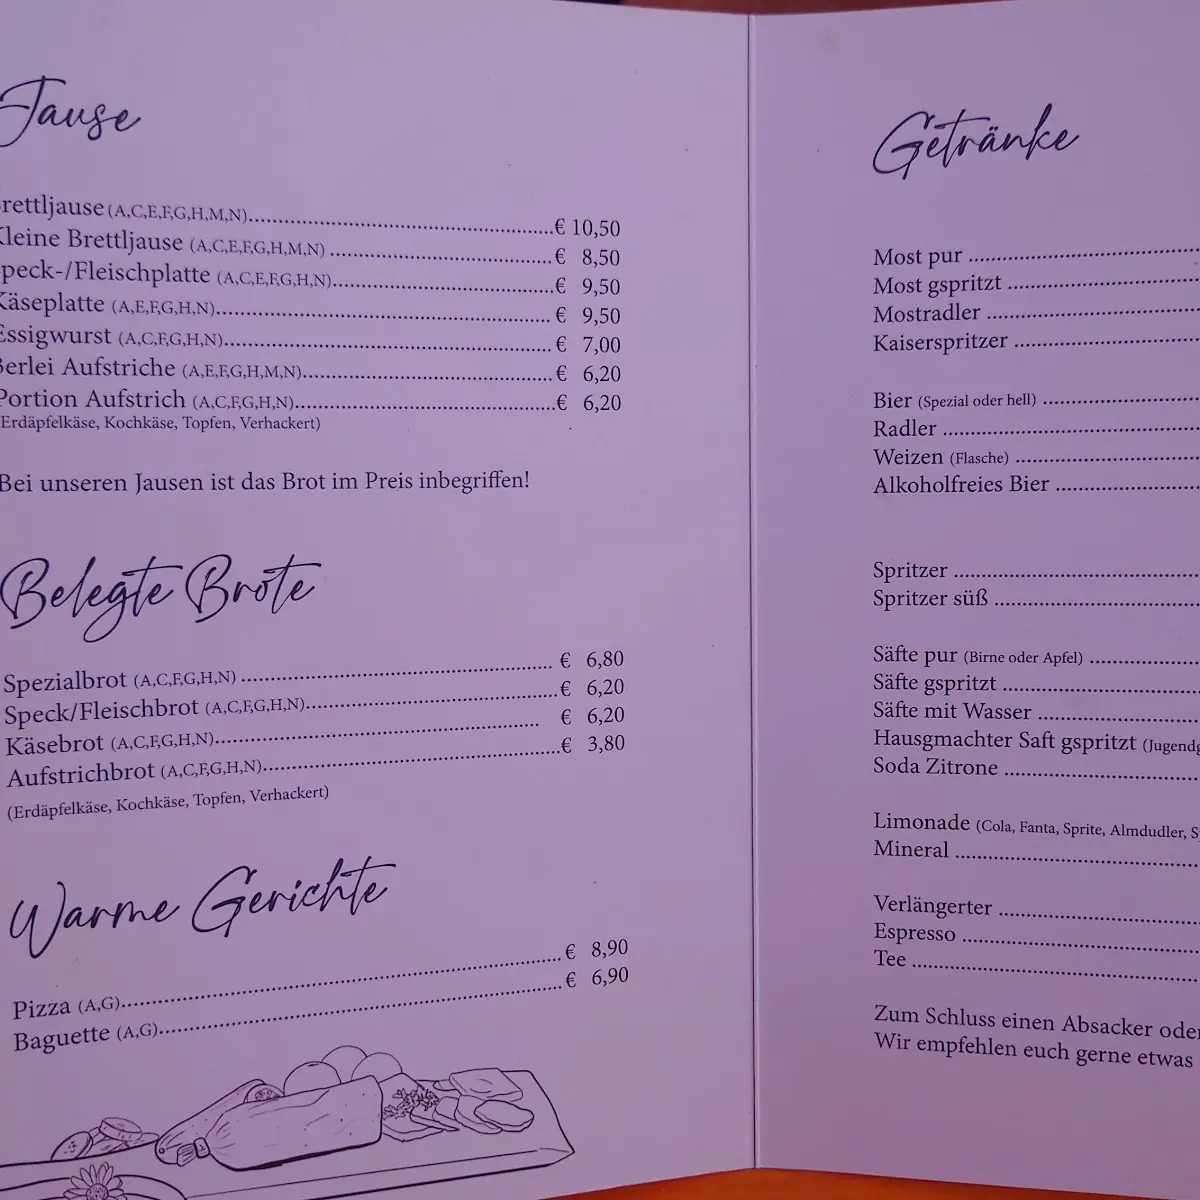 Jause
rettljause (A,C,E,F,G,H,M,N)..........€ 10,50
Kleine Brettljause (A,C,E,F,G,H,M,N)..........€ 8,50
peck-/Fleischplatte (A,C,E,F,G,H,N)..........€ 9,50
Käseplatte (A,E,F,G,H,N)..........€ 9,50
Essigwurst (A,C,F,G,H,N)..........€ 7,00
erlei Aufstriche (A,E,F,G,H,M,N)..........€ 6,20
Portion Aufstrich (A,C,F,G,H,N)..........€ 6,20
Erdäpfelkäse, Kochkäse, Topfen, Verhackert)
Bei unseren Jausen ist das Brot im Preis inbegriffen!
Belegte Brote
Spezialbrot (A,C,F,G,H,N)..........€ 6,80
Speck/Fleischbrot (A,C,F,G,H,N)..........€ 6,20
Käsebrot (A,C,F,G,H,N)..........€ 6,20
Aufstrichbrot (A,C,F,G,H,N)..........€ 3,80
(Erdäpfelkäse, Kochkäse, Topfen, Verhackert)
Warme Gerichte
Pizza (A,G)..........€ 8,90
Baguette (A,G)..........€ 6,90
Getränke
Most pur ..........
Most gspritzt ..........
Mostradler ..........
Kaiserspritzer ..........
Bier (Spezial oder hell) ..........
Radler ..........
Weizen (Flasche) ..........
Alkoholfreies Bier ..........
Spritzer ..........
Spritzer süß ..........
Säfte pur (Birne oder Apfel) ..........
Säfte gspritzt ..........
Säfte mit Wasser ..........
Hausgmachter Saft gspritzt (Jugendg
Soda Zitrone ..........
Limonade (Cola, Fanta, Sprite, Almdudler, S
Mineral ..........
Verlängerter ..........
Espresso ..........
Tee ..........
Zum Schluss einen Absacker oder
Wir empfehlen euch gerne etwas